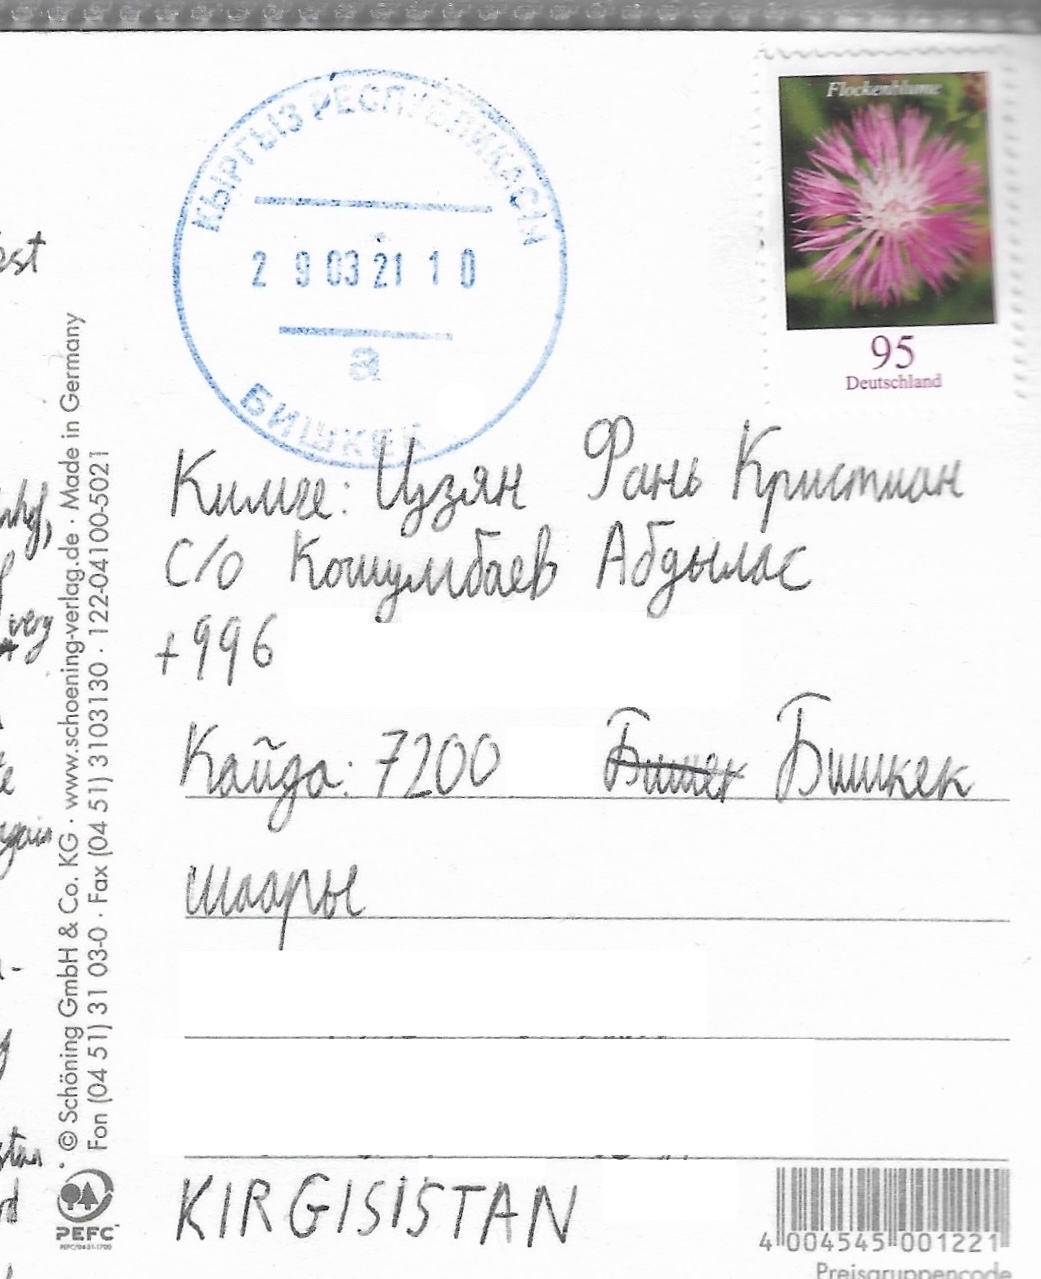 Flockenblume
95
Deutschland
КЫРГЫЗ РЕСПУБЛИКАСЫ
2 9 03 21 1 0
а
БИШКЕК
est
very
© Schöning GmbH & Co. KG · www.schoening-verlag.de · Made in Germany
Fon (04 51) 31 03-0 · Fax (04 51) 3103130 · 122-04100-5021
Кимге: Цзян Фань Кристиан
C/O Кошумбаев Абдылас
+996
Кайда: 7200 Бишкек
шаары
KIRGISISTAN
PEFC
4 004545 001221
Preisgruppencode